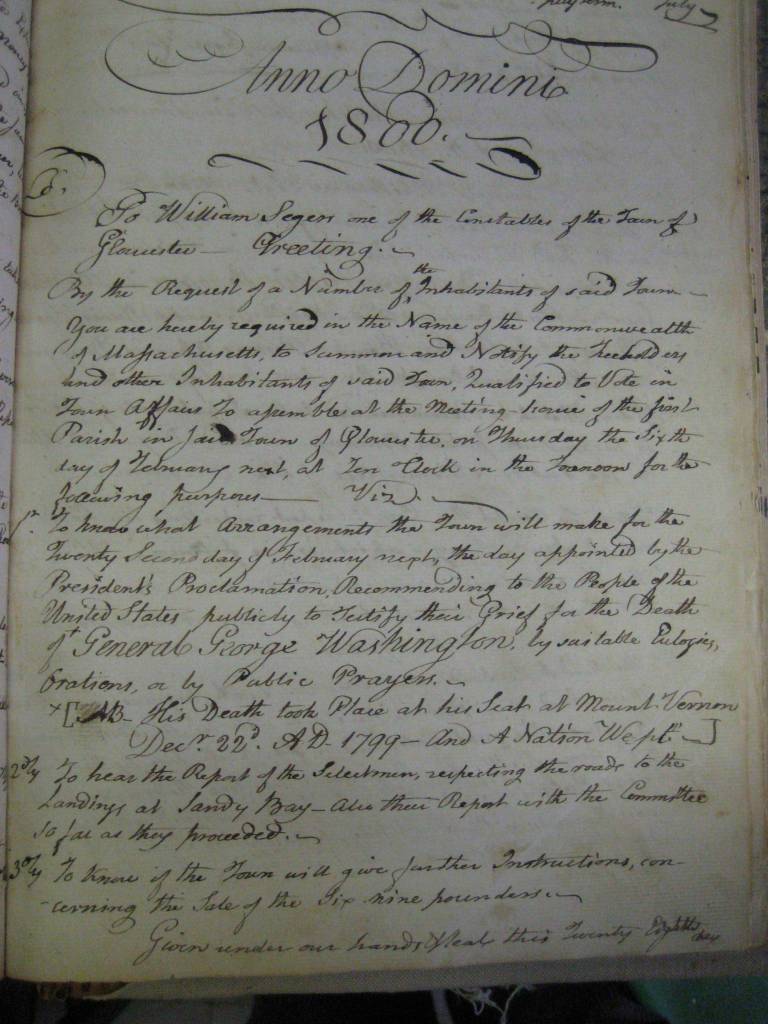 July
Anno Domini
1800.
To William Segers one of the Constables of the Town of
Gloucester — Greeting.
By the Request of a Number of the Inhabitants of said Town
You are hereby required in the Name of the Commonwealth
of Massachusetts, to Summon and Notify the Freeholders
and other Inhabitants of said Town, Qualified to Vote in
Town Affairs To assemble at the Meeting-house of the first
Parish in said Town of Gloucester, on Thursday the Sixth
day of February next, at Ten Clock in the Forenoon for the
following purposes — Viz.
1st. To know what Arrangements the Town will make for the
Twenty Second day of February next, the day appointed by the
President's Proclamation, Recommending to the People of the
United States publicly to Testify their Grief for the Death
of + General George Washington, by suitable Eulogies,
Orations, or by Public Prayers.
+ [NB— His Death took Place at his Seat at Mount Vernon
Decr. 22d. AD. 1799 — And A Nation Wept]
2dly To hear the Report of the Selectmen, respecting the roads to the
Landings at Sandy Bay — Also their Report with the Committee
so far as they proceeded.
3dly To know if the Town will give further Instructions, con-
-cerning the Sale of the Six nine pounders.
Given under our hands & Seal this Twenty Eighth day